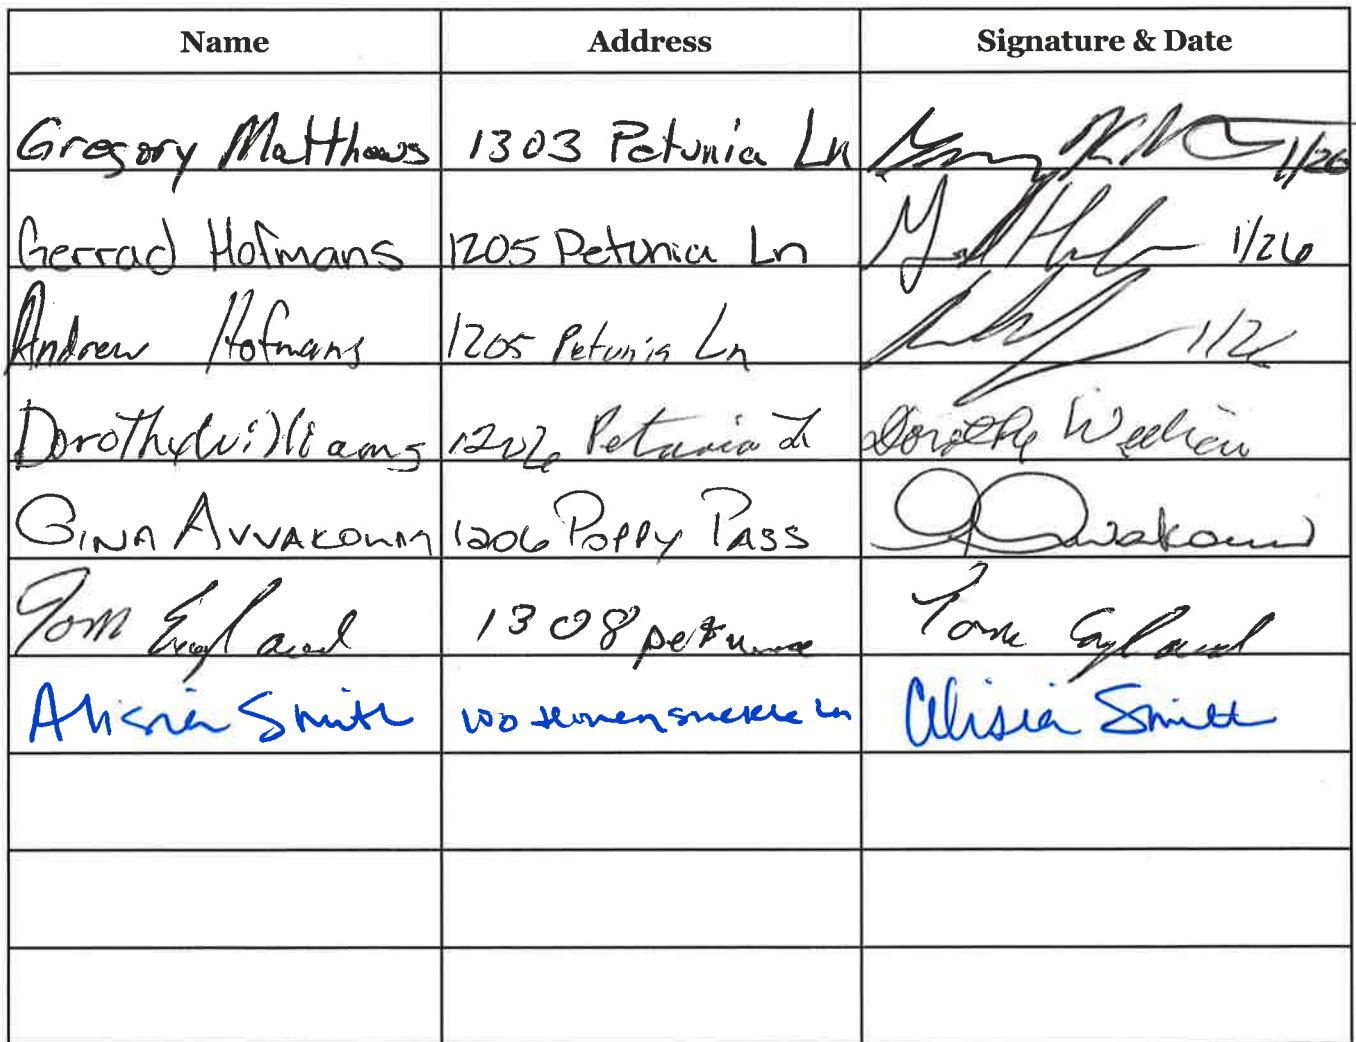 Name Address Signature & Date
Gregory Matthews 1303 Petunia Ln 1/26
Gerrad Hofmans 1205 Petunia Ln 1/26
Andrew Hofmans 1205 Petunia Ln 1/26
Dorothy Williams 1206 Petunia Ln Dorothy
GINA AVVAKOUMM 1206 POPPY PASS
Tom England 1308 petunia Tom England
Alisia Smith Ln Alisia Smith